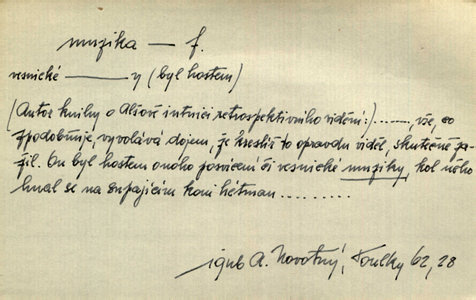 muzika — f.
vesnické ——— y (byl hostem)
(Autor knihy o Alšově intuici retrospektivního vidění:) ........, vše, co
zpodobňuje, vyvolává dojem, že kreslíř to opravdu viděl, skutečně za-
žil. On byl hostem onoho posvícení či vesnické muziky, kol něho
hnal se na supajícím koni hétman ..........
A. Novotný, Toulky 62, 28